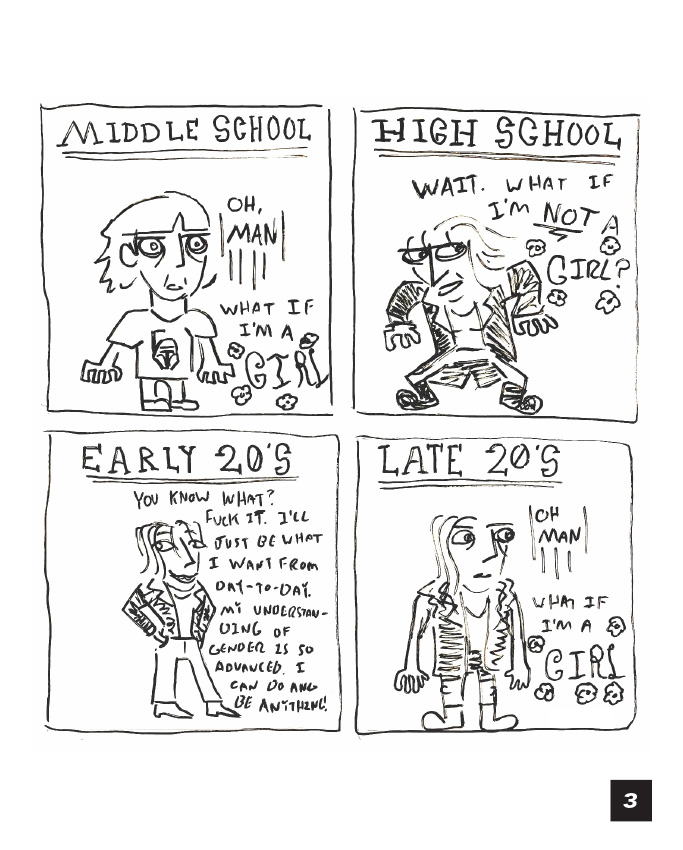 MIDDLE SCHOOL
OH,
MAN
WHAT IF
I'M A
GIRL
HIGH SCHOOL
WAIT. WHAT IF
I'M NOT A
GIRL?
EARLY 20'S
YOU KNOW WHAT?
FUCK IT. I'LL
JUST BE WHAT
I WANT FROM
DAY-TO-DAY.
MY UNDERSTAN-
DING OF
GENDER IS SO
ADVANCED. I
CAN DO AND
BE ANYTHING!
LATE 20'S
OH
MAN
WHAT IF
I'M A
GIRL
3